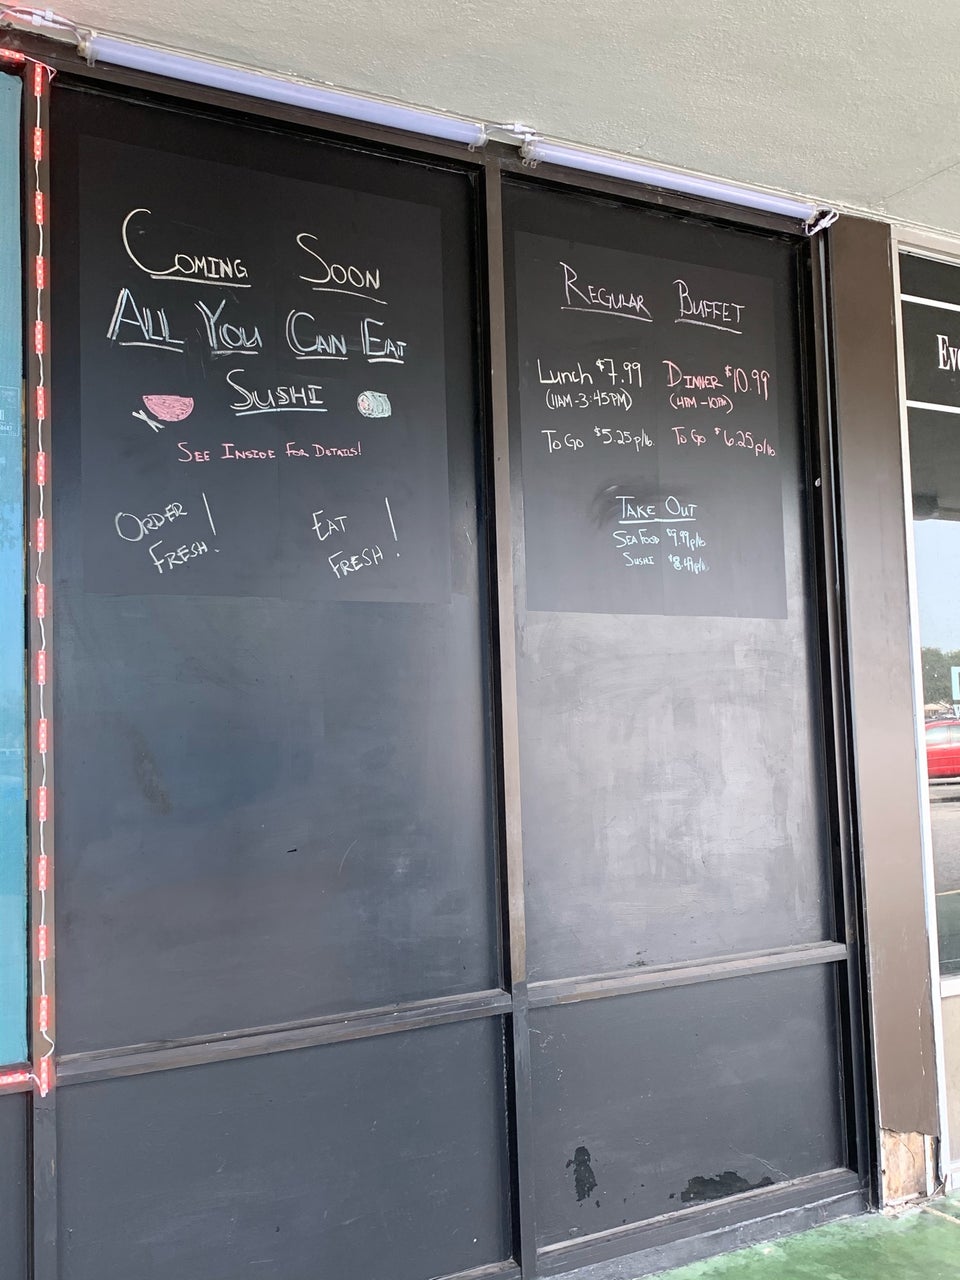 COMING SOON
ALL YOU CAN EAT
SUSHI
SEE INSIDE FOR DETAILS!
ORDER
FRESH!
EAT
FRESH!
REGULAR BUFFET
Lunch $7.99
(11AM-3:45PM)
To Go $5.25 p/lb
DINNER $10.99
(4PM-10PM)
To Go $6.25 p/lb
TAKE OUT
SEA FOOD $9.99 p/lb
SUSHI $8.49 p/lb